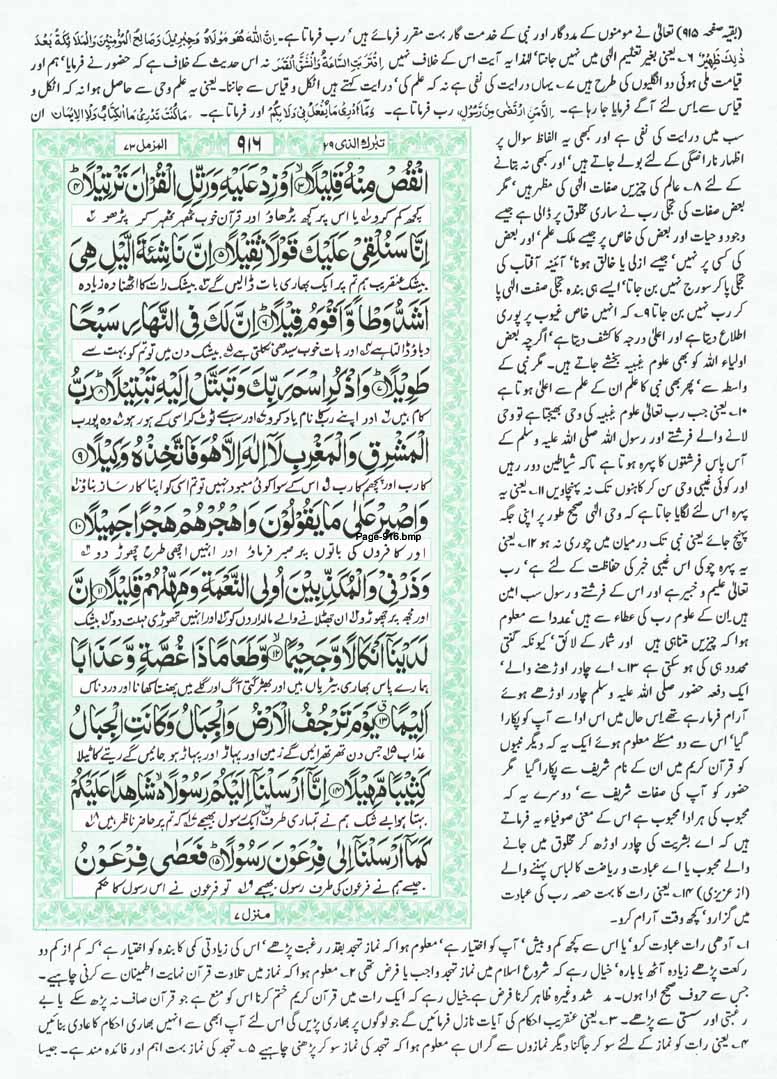 (بقیہ صفحہ ۹۱۵) تعالیٰ نے مومنوں کے مددگار اور نبی کے خدمت گار بہت مقرر فرمائے ہیں' رب فرماتا ہے۔ اِنَّ اللّٰہَ ھُوَ مَوْلَاہُ وَجِبْرِیْلُ وَصَالِحُ الْمُؤْمِنِیْنَ وَالْمَلٰٓئِکَۃُ بَعْدَ
ذٰلِکَ ظَھِیْرٌ ۶۔ یعنی بغیر تعلیم الٰہی میں نہیں جانتا' لہٰذا یہ آیت اس کے خلاف نہیں۔ اِقْتَرَبَتِ السَّاعَۃُ وَانْشَقَّ الْقَمَرُ نہ اس حدیث کے خلاف ہے کہ حضور نے فرمایا' ہم اور
قیامت ملی ہوئی دو انگلیوں کی طرح ہیں ۷۔ یہاں درایت کی نفی ہے نہ کہ علم کی' درایت کہتے ہیں اٹکل و قیاس سے جاننا۔ یعنی یہ علم وحی سے حاصل ہوا نہ کہ اٹکل و
قیاس سے اس لئے آگے فرمایا جا رہا ہے۔ اِلَّا مَنِ ارْتَضٰی مِنْ رَّسُوْلٍ، رب فرماتا ہے۔ وَمَآ اَدْرِیْ مَا یُفْعَلُ بِیْ وَلَا بِکُمْ اور فرماتا ہے۔ مَا کُنْتَ تَدْرِیْ مَا الْکِتَابُ وَلَا الْاِیْمَانُ ان
سب میں درایت کی نفی ہے اور کبھی یہ الفاظ سوال پر
اظہار ناراضگی کے لئے بولے جاتے ہیں' اور کبھی نہ بتانے
کے لئے ۸۔ عالم کی چیزیں صفات الٰہی کی مظہر ہیں' مگر
بعض صفات کی تجلی رب نے ساری مخلوق پر ڈالی ہے جیسے
وجود و حیات اور بعض کی خاص پر جیسے ملک علم' اور بعض
کی کسی پر نہیں' جیسے ازلی یا خالق ہونا' آئینہ آفتاب کی
تجلی پا کر سورج نہیں بن جاتا' ایسے ہی بندہ تجلی صفت الٰہی پا
کر رب نہیں بن جاتا ۹۔ کہ انہیں خاص غیوب پر پوری
اطلاع دیتا ہے اور اعلیٰ درجہ کا کشف دیتا ہے' اگرچہ بعض
اولیاء اللہ کو بھی علوم غیبیہ بخشے جاتے ہیں۔ مگر نبی کے
واسطہ سے' پھر بھی نبی کا علم ان کے علم سے اعلیٰ ہوتا ہے
۱۰۔ یعنی جب رب تعالیٰ علوم غیبیہ کی وحی بھیجتا ہے تو وحی
لانے والے فرشتے اور رسول اللہ صلی اللہ علیہ وسلم کے
آس پاس فرشتوں کا پہرہ ہوتا ہے تاکہ شیاطین دور رہیں
اور کوئی غیبی وحی سن کر کاہنوں تک نہ پہنچادیں ۱۱۔ یعنی یہ
پہرہ اس لئے لگایا جاتا ہے کہ وحی الٰہی صحیح طور پر اپنی جگہ
پہنچ جائے یعنی نبی تک درمیان میں چوری نہ ہو ۱۲۔ یعنی
یہ پہرہ چوکی اس غیبی خبر کی حفاظت کے لئے ہے' رب
تعالیٰ علیم و خبیر ہے اور اس کے فرشتے و رسول سب امین
ہیں ان کے علوم رب کی عطاء سے ہیں' عددا سے معلوم
ہوا کہ چیزیں متناہی ہیں اور شمار کے لائق' کیونکہ گنتی
محدود ہی کی ہو سکتی ہے ۱۳۔ اے چادر اوڑھنے والے'
ایک دفعہ حضور صلی اللہ علیہ وسلم چادر اوڑھے ہوئے
آرام فرما رہے تھے اس حال میں اس ادا سے آپ کو پکارا
گیا' اس سے دو مسئلے معلوم ہوئے ایک یہ کہ دیگر نبیوں
کو قرآن کریم میں ان کے نام شریف سے پکارا گیا مگر
حضور کو آپ کی صفات شریف سے' دوسرے یہ کہ
محبوب کی ہر ادا محبوب ہے اس کے معنی صوفیاء یہ فرماتے
ہیں کہ اے بشریت کی چادر اوڑھ کر مخلوق میں جانے
والے محبوب یا اے عبادت و ریاضت کا لباس پہننے والے
(از عزیزی) ۱۴۔ یعنی رات کا بہت حصہ رب کی عبادت
میں گزارو' کچھ وقت آرام کرو۔
تبٰرک الذی ۲۹
۹۱۶
المزمل ۷۳
انْقُصْ مِنْهُ قَلِيْلًا ۙ۳ اَوْ زِدْ عَلَيْهِ وَرَتِّلِ الْقُرْاٰنَ تَرْتِيْلًا ؕ۴
کچھ کم کرو ۱ یا اس پر کچھ بڑھاؤ اور قرآن خوب ٹھہر ٹھہر کر پڑھو ۲
اِنَّا سَنُلْقِيْ عَلَيْكَ قَوْلًا ثَقِيْلًا ۵ اِنَّ نَاشِئَةَ الَّيْلِ هِيَ
بیشک عنقریب ہم تم پر ایک بھاری بات ڈالیں گے ۳ بیشک رات کا اٹھنا وہ زیادہ
اَشَدُّ وَطْاً وَّاَقْوَمُ قِيْلًا ؕ۶ اِنَّ لَكَ فِى النَّهَارِ سَبْحًا
دباؤ ڈالتا ہے ۴ اور بات خوب سیدھی نکلتی ہے ۵ بیشک دن میں تو تم کو بہت سے
طَوِيْلًا ؕ۷ وَاذْكُرِ اسْمَ رَبِّكَ وَتَبَتَّلْ اِلَيْهِ تَبْتِيْلًا ؕ۸ رَبُّ
کام ہیں ۶ اور اپنے رب کا نام یاد کرو ۷ اور سب سے ٹوٹ کر اسی کے ہو رہو ۸ وہ پورب
الْمَشْرِقِ وَالْمَغْرِبِ لَاۤ اِلٰهَ اِلَّا هُوَ فَاتَّخِذْهُ وَكِيْلًا ۹
کا رب اور پچھم کا رب ۹ اس کے سوا کوئی معبود نہیں تو تم اسی کو اپنا کارساز بناؤ ۱۰
وَاصْبِرْ عَلٰى مَا يَقُوْلُوْنَ وَاهْجُرْهُمْ هَجْرًا جَمِيْلًا ۱۰
Page-916.bmp
اور کافروں کی باتوں پر صبر فرماؤ اور انہیں اچھی طرح چھوڑ دو
وَذَرْنِيْ وَالْمُكَذِّبِيْنَ اُولِى النَّعْمَةِ وَمَهِّلْهُمْ قَلِيْلًا ۱۱ اِنَّ
اور مجھ پر چھوڑو ان جھٹلانے والے مالداروں کو اور انہیں تھوڑی مہلت دو بیشک
لَدَيْنَاۤ اَنْكَالًا وَّجَحِيْمًا ۙ۱۲ وَّطَعَامًا ذَا غُصَّةٍ وَّعَذَابًا
ہمارے پاس بھاری بیڑیاں ہیں اور بھڑکتی آگ اور گلے میں پھنستا کھانا اور دردناک
اَلِيْمًا ۱۳ يَوْمَ تَرْجُفُ الْاَرْضُ وَالْجِبَالُ وَكَانَتِ الْجِبَالُ
عذاب ۱۵ جس دن تھرتھرائیں گے زمین اور پہاڑ اور پہاڑ ہو جائیں گے ریتے کا ٹیلا
كَثِيْبًا مَّهِيْلًا ۱۴ اِنَّاۤ اَرْسَلْنَاۤ اِلَيْكُمْ رَسُوْلًا شَاهِدًا عَلَيْكُمْ
بہتا ہوا بے شک ہم نے تمہاری طرف ایک رسول بھیجے کہ تم پر حاضر ناظر ہیں
كَمَاۤ اَرْسَلْنَاۤ اِلٰى فِرْعَوْنَ رَسُوْلًا ؕ۱۵ فَعَصٰى فِرْعَوْنُ
جیسے ہم نے فرعون کی طرف رسول بھیجے تو فرعون نے اس رسول کا حکم
منزل ۷
۱۔ آدھی رات عبادت کرو' یا اس سے کچھ کم و بیش' آپ کو اختیار ہے' معلوم ہوا کہ نماز تہجد بقدر رغبت پڑھے' اس کی زیادتی کمی کا بندہ کو اختیار ہے' کہ کم از کم دو
رکعت پڑھے زیادہ آٹھ یا بارہ' خیال رہے کہ شروع اسلام میں نماز تہجد واجب یا فرض تھی ۲۔ معلوم ہوا کہ نماز میں تلاوت قرآن نہایت اطمینان سے کرنی چاہیے۔
جس سے حروف صحیح ادا ہوں۔ مد شد وغیرہ ظاہر کرنا فرض ہے خیال رہے کہ ایک رات میں قرآن کریم ختم کرنا اس کو منع ہے جو قرآن صاف نہ پڑھ سکے یا بے
رغبتی اور سستی سے پڑھے۔ ۳۔ یعنی عنقریب احکام کی آیات نازل فرمائیں گے جو لوگوں پر بھاری پڑیں گی اس لئے آپ ابھی سے انہیں بھاری احکام کا عادی بنائیں
۴۔ یعنی رات کو نماز کے لئے سو کر جاگنا دیگر نمازوں سے گراں ہے معلوم ہوا کہ تہجد کی نماز سو کر پڑھنی چاہیے ۵۔ تہجد کی نماز بہت اہم اور فائدہ مند ہے۔ جیسا